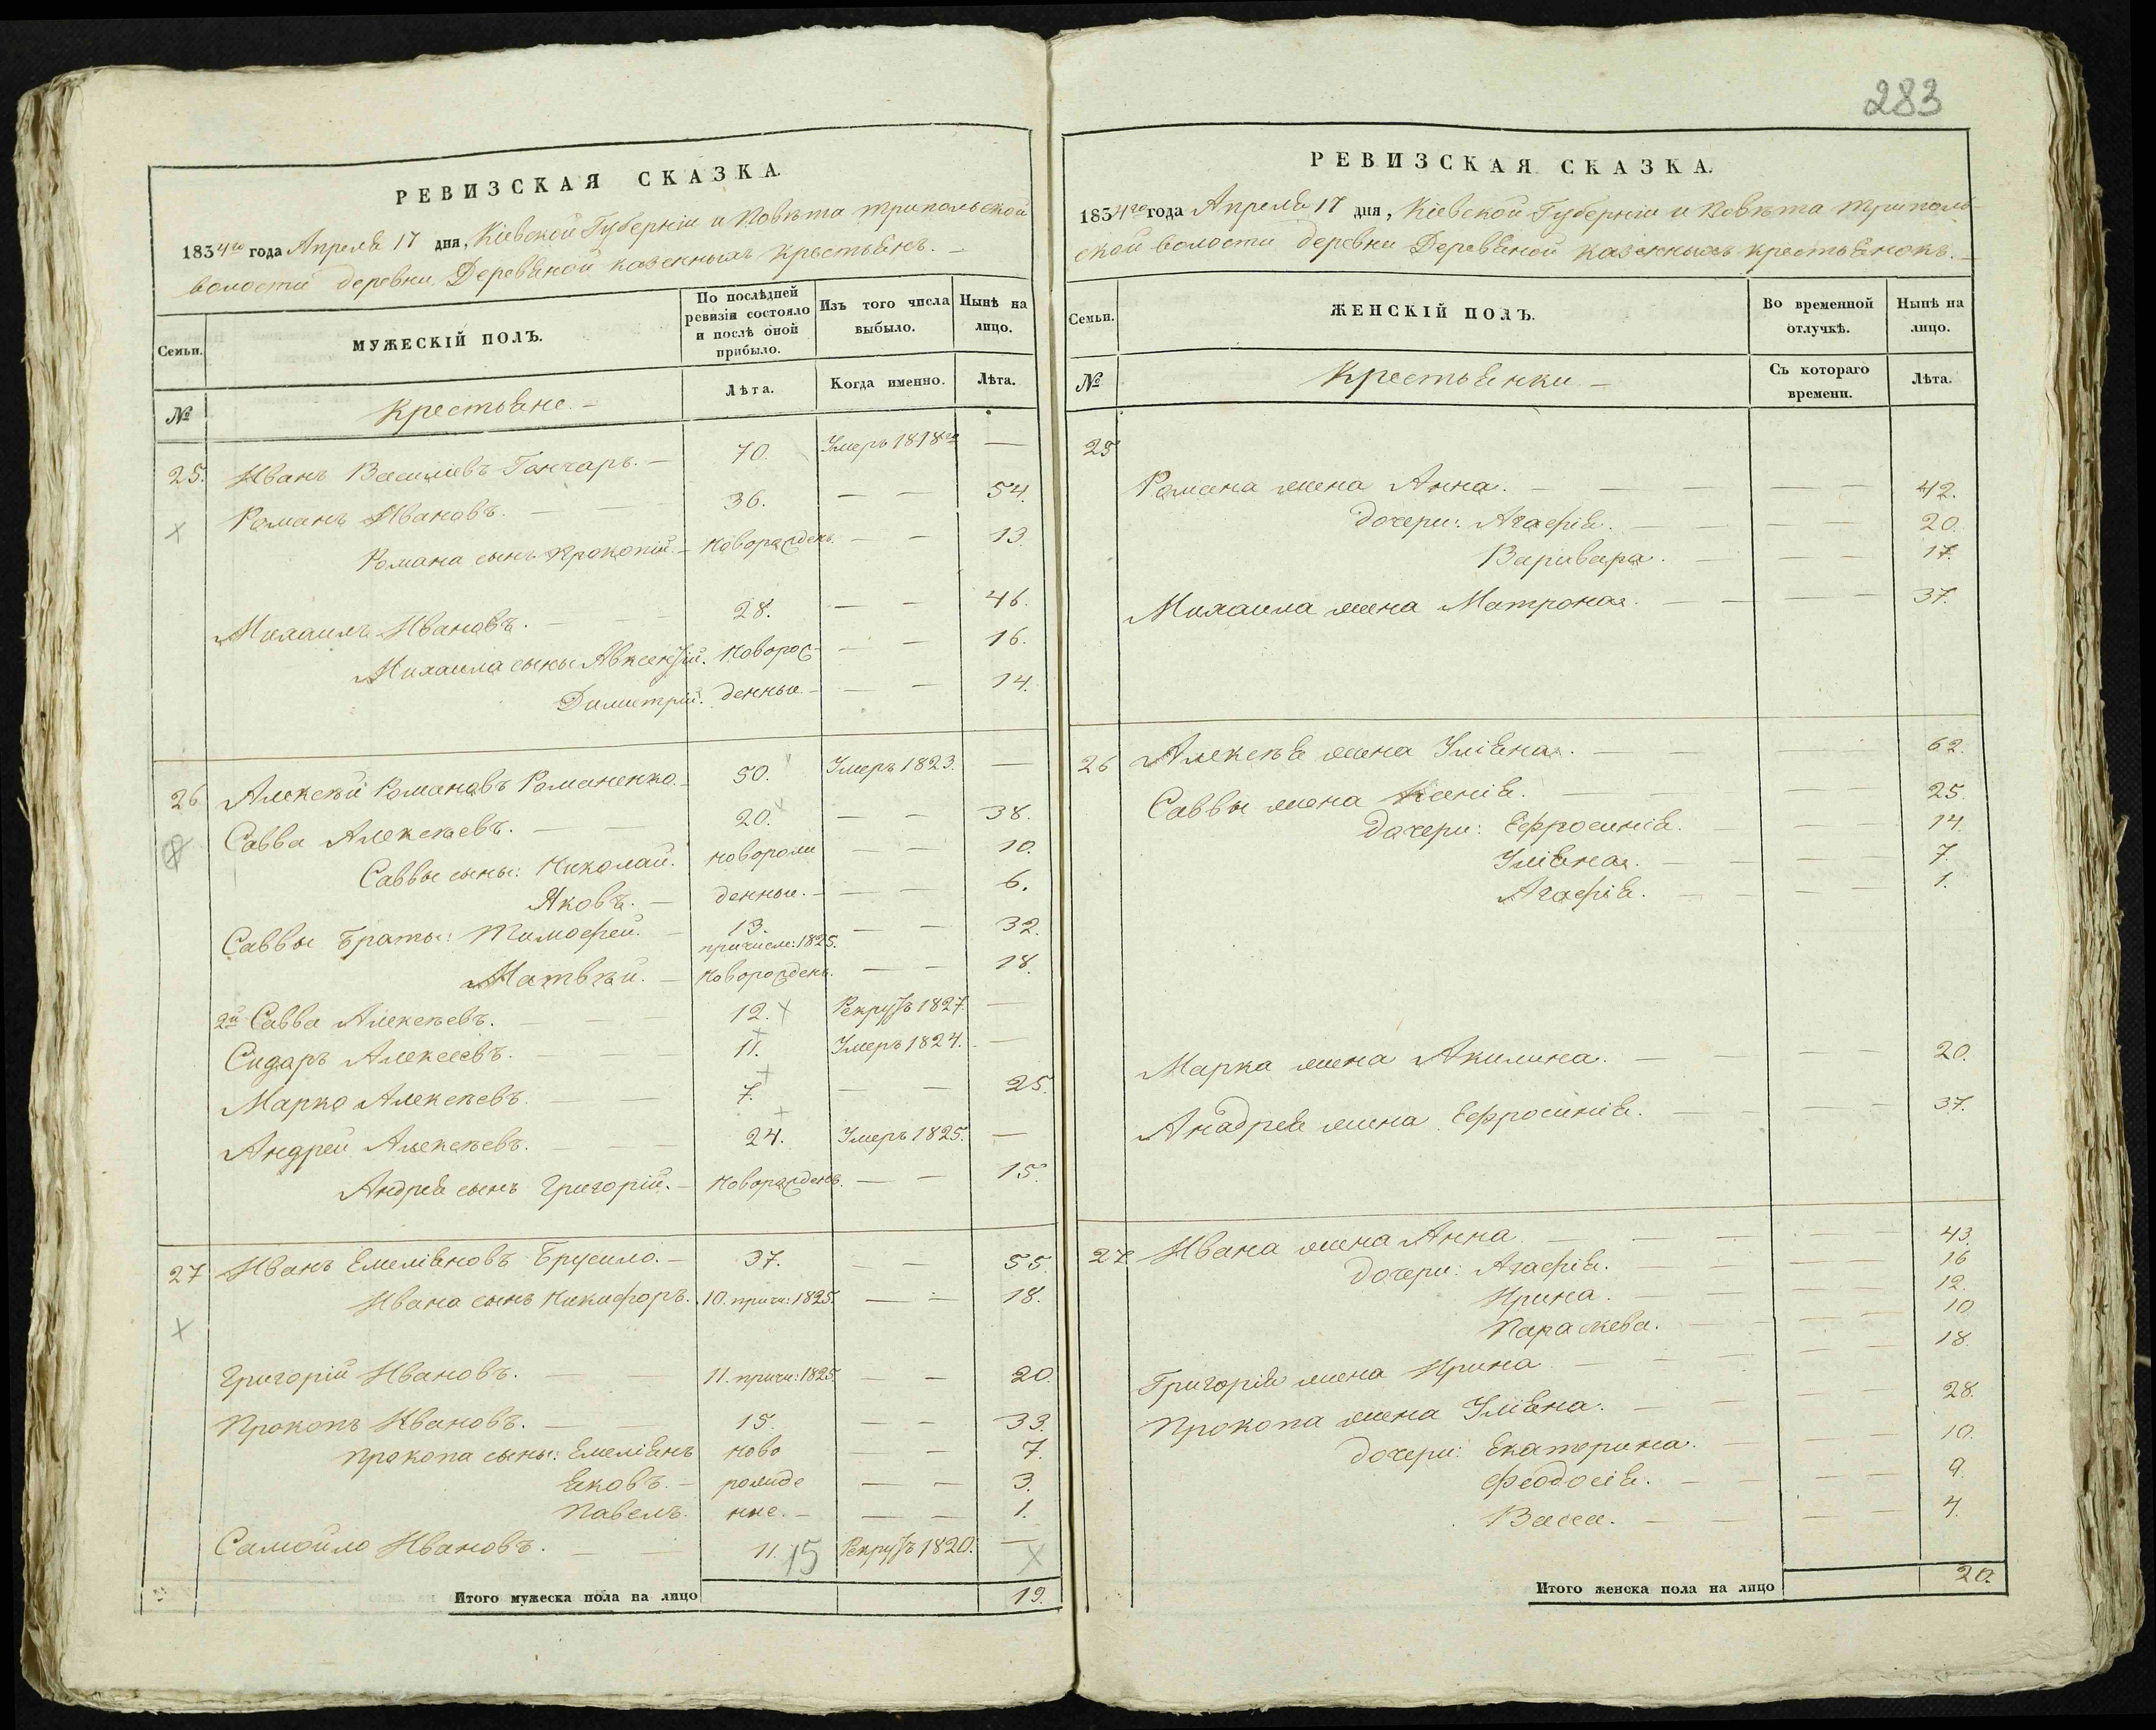 РЕВИЗСКАЯ СКАЗКА.
1834го года Апреля 17 дня, Кіевской Губерніи и Повѣта Трипольской
волости деревни Деревяной казенныхъ крестьянъ. —
Семьи.
МУЖЕСКІЙ ПОЛЪ.
По послѣдней ревизіи состояло и послѣ оной прибыло.
Изъ того числа выбыло.
Нынѣ на лицо.
№
Крестьяне. —
Лѣта.
Когда именно.
Лѣта.
25. Иванъ Василіевъ Гончаръ. — 70. Умеръ 1818го —
Романъ Ивановъ. — — 36. — — 54.
Романа сынъ Прокопій. — новорожденъ. — — 13.
Михаилъ Ивановъ. — — 28. — — 46.
Михаила сыны Авксентій. новорож- — — 16.
Димитрій. денные. — — — 14.
26. Алексѣй Романовъ Романенко. — 50. Умеръ 1823. —
Савва Алексѣевъ. — — 20. — — 38.
Саввы сыны: Николай. новорож — — 10.
Яковъ. — денные. — — — 6.
Саввы браты: Тимофей. — 13. причисл: 1825. — — 32.
Матвѣй. — новорожденъ. — — 18.
2й Савва Алексѣевъ. — — 12. Рекрутъ 1827. —
Сидоръ Алексеевъ. — — 11. Умеръ 1824. —
Марко Алексѣевъ. — — 7. — — 25.
Андрей Алексѣевъ. — — 24. Умеръ 1825. —
Андрея сынъ Григорій. — новорожденъ. — — 15.
27 Иванъ Емеліяновъ Брусило. — 37. — — 55.
Ивана сынъ Никифоръ. 10. причи: 1825. — — 18.
Григорій Ивановъ. — — 11. причи: 1825. — — 20.
Прокопъ Ивановъ. — — 15. — — 33.
Прокопа сыны: Емеліянъ ново — — 7.
Яковъ. — рожде — — 3.
Павелъ. нне. — — — 1.
Самойло Ивановъ. — — 11. 15 Рекрутъ 1820. —
Итого мужеска пола на лицо 19.
283
РЕВИЗСКАЯ СКАЗКА.
1834го года Апреля 17 дня, Кіевской Губерніи и Повѣта Триполь
ской волости деревни Деревяной казенныхъ крестьянокъ. —
Семьи.
ЖЕНСКІЙ ПОЛЪ.
Во временной отлучкѣ.
Нынѣ на лицо.
№
Крестьянки —
Съ котораго времени.
Лѣта.
25
Романа жена Анна. — — — 42.
дочери: Агафія. — — — 20.
Варивара. — — — 17.
Михаила жена Матрона. — — — 37.
26 Алексѣя жена Уліяна. — — — 62.
Саввы жена Ксенія. — — — 25.
дочери: Ефросинія. — — — 14.
Уліяна. — — — 7.
Агафія. — — — 1.
Марка жена Акилина. — — — 20.
Андрея жена Ефросинія. — — — 37.
27 Ивана жена Анна — — — 43.
дочери: Агафія. — — — 16
Ирина. — — — 12.
Параскева. — — — 10
Григорія жена Ирина — — — 18.
Прокопа жена Уліяна. — — — 28.
дочери: Екатерина. — — — 10.
Феодосія. — — — 9.
Васса. — — — 4.
Итого женска пола на лицо 20.